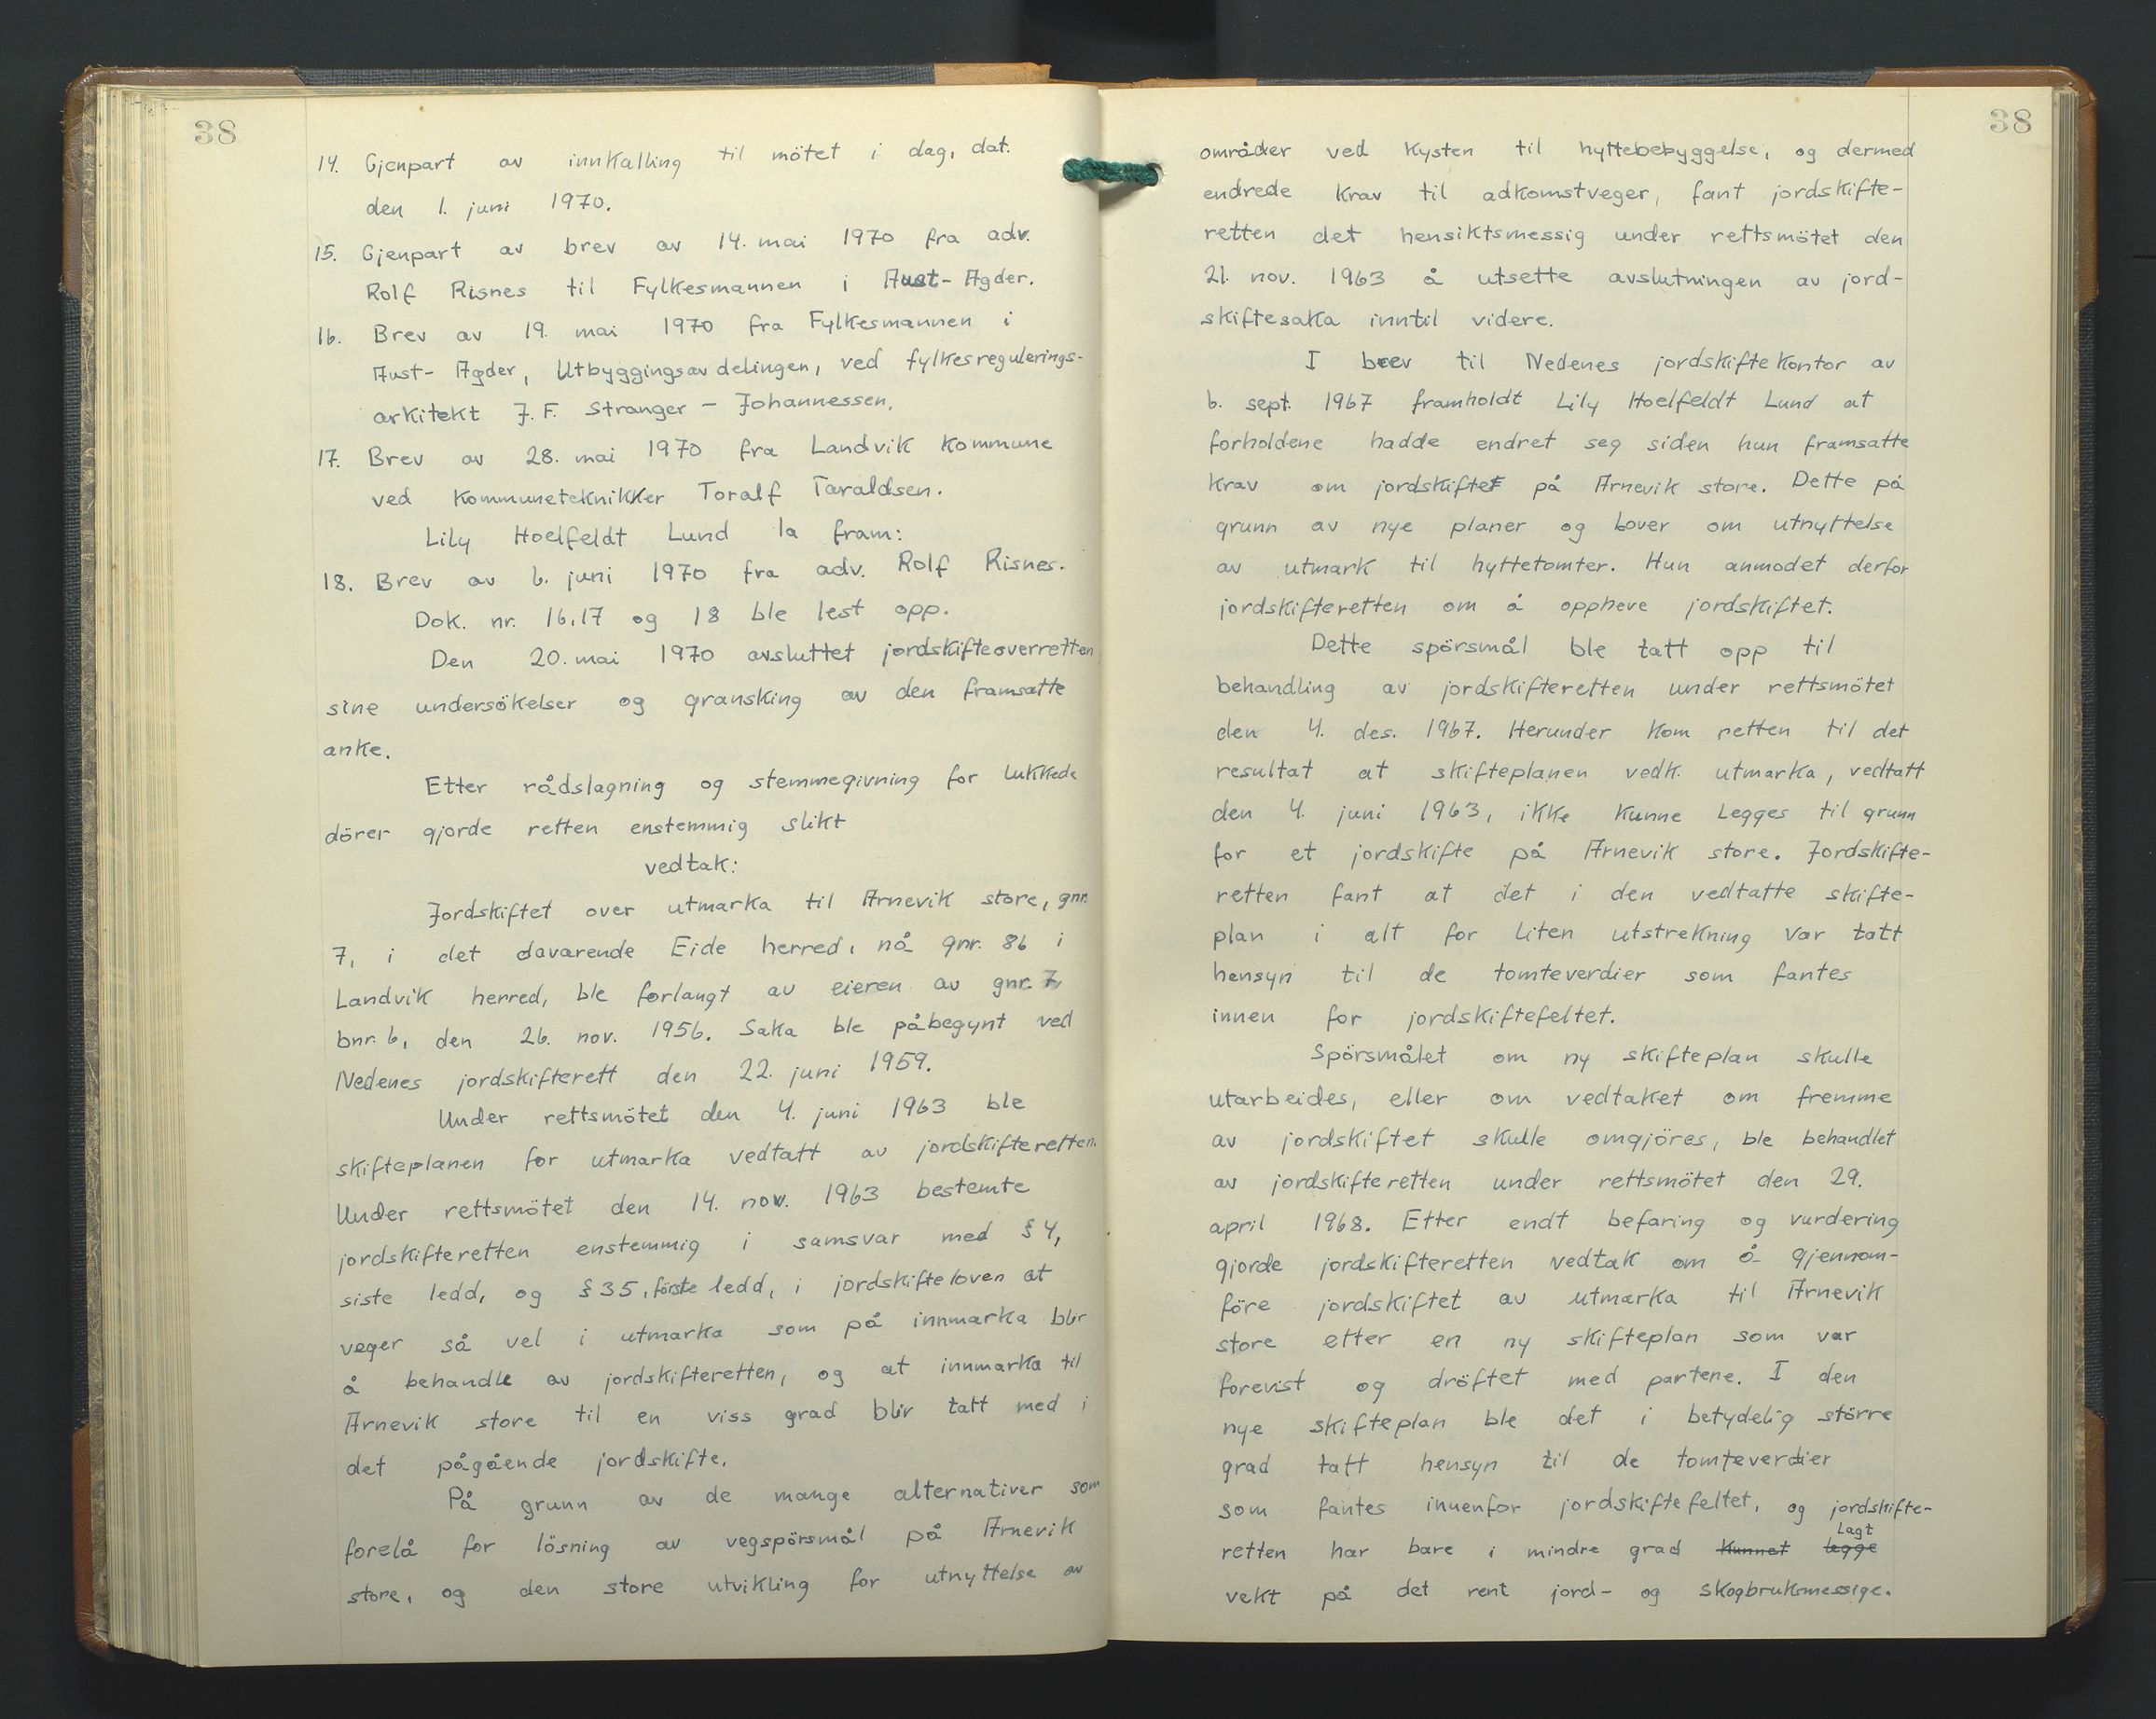 38
14. Gjenpart av innkalling til mötet i dag, dat.
den 1. juni 1970.
15. Gjenpart av brev av 14. mai 1970 fra adv.
Rolf Risnes til Fylkesmannen i Aust-Agder.
16. Brev av 19. mai 1970 fra Fylkesmannen i
Aust-Agder, Utbyggingsavdelingen, ved fylkesregulerings-
arkitekt J. F. Stranger - Johannessen.
17. Brev av 28. mai 1970 fra Landvik kommune
ved kommunetekniker Toralf Taraldsen.
Lily Hoelfeldt Lund la fram:
18. Brev av 6. juni 1970 fra adv. Rolf Risnes.
Dok. nr. 16, 17 og 18 ble lest opp.
Den 20. mai 1970 avsluttet jordskifteoverretten
sine undersökelser og gransking av den framsatte
anke.
Etter rådslagning og stemmegivning for lukkede
dörer gjorde retten enstemmig slikt
vedtak:
Jordskiftet over utmarka til Arnevik store, gnr.
7, i det davarende Eide herred, nå gnr. 86 i
Landvik herred, ble forlangt av eieren av gnr. 7,
bnr. 6, den 26. nov. 1956. Saka ble påbegynt ved
Nedenes jordskifterett den 22. juni 1959.
Under rettsmötet den 4. juni 1963 ble
skifteplanen for utmarka vedtatt av jordskifteretten.
Under rettsmötet den 14. nov. 1963 bestemte
jordskifteretten enstemmig i samsvar med § 4,
siste ledd, og § 35, förste ledd, i jordskifteloven at
veger så vel i utmarka som på innmarka blir
å behandle av jordskifteretten, og at innmarka til
Arnevik store til en viss grad blir tatt med i
det pågående jordskifte.
På grunn av de mange alternativer som
forelå for lösning av vegspörsmål på Arnevik
store, og den store utvikling for utnyttelse av
38
områder ved kysten til hyttebebyggelse, og dermed
endrede krav til adkomstveger, fant jordskifte-
retten det hensiktsmessig under rettsmötet den
21. nov. 1963 å utsette avslutningen av jord-
skiftesaka inntil videre.
I brev til Nedenes jordskiftekontor av
6. sept. 1967 framholdt Lily Hoelfeldt Lund at
forholdene hadde endret seg siden hun framsatte
krav om jordskiftet på Arnevik store. Dette på
grunn av nye planer og lover om utnyttelse
av utmark til hyttetomter. Hun anmodet derfor
jordskifteretten om å oppheve jordskiftet.
Dette spörsmål ble tatt opp til
behandling av jordskifteretten under rettsmötet
den 4. des. 1967. Herunder kom retten til det
resultat at skifteplanen vedk. utmarka, vedtatt
den 4. juni 1963, ikke kunne legges til grunn
for et jordskifte på Arnevik store. Jordskifte-
retten fant at det i den vedtatte skifte-
plan i alt for liten utstrekning var tatt
hensyn til de tomteverdier som fantes
innen for jordskiftefeltet.
Spörsmålet om ny skifteplan skulle
utarbeides, eller om vedtaket om fremme
av jordskiftet skulle omgjöres, ble behandlet
av jordskifteretten under rettsmötet den 29.
april 1968. Etter endt befaring og vurdering
gjorde jordskifteretten vedtak om å gjennom-
före jordskiftet av utmarka til Arnevik
store etter en ny skifteplan som var
forevist og dröftet med partene. I den
nye skifteplan ble det i betydelig större
grad tatt hensyn til de tomteverdier
som fantes innenfor jordskiftefeltet, og jordskifte-
lagt
retten har bare i mindre grad kunnet legge
vekt på det rent jord- og skogbruksmessige.